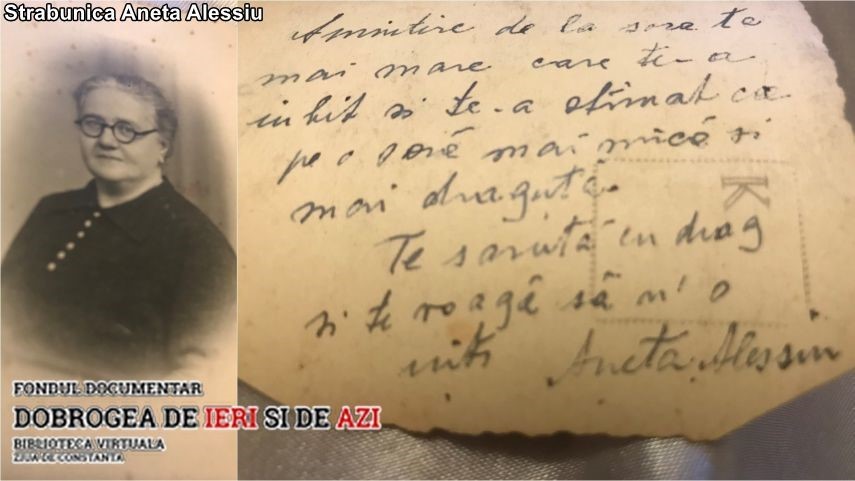 Strabunica Aneta Alessiu
Amintire de la sora ta
mai mare care te-a
iubit si te-a stimat ca
pe o soră mai mică si
mai draguță.
Te sarută cu drag
si te roagă să n'o
uiți Aneta Alessiu
K
FONDUL DOCUMENTAR
DOBROGEA DE IERI SI DE AZI
BIBLIOTECA VIRTUALA
ZIUA DE CONSTANTA